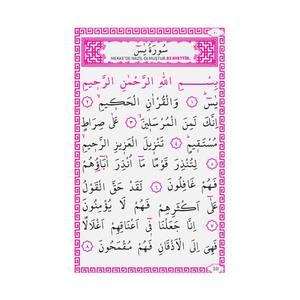 سُورَةُ يٰسٓ
MEKKE'DE NAZİL OLMUŞTUR.83 AYETTİR.
بِسْمِ اللّٰهِ الرَّحْمٰنِ الرَّحِيمِ
يٰسٓ ﴿١﴾ وَالْقُرْاٰنِ الْحَكِيمِ ﴿٢﴾
اِنَّكَ لَمِنَ الْمُرْسَلِينَ ﴿٣﴾ عَلٰى صِرَاطٍ
مُسْتَقِيمٍ ﴿٤﴾ تَنْزِيلَ الْعَزِيزِ الرَّحِيمِ
﴿٥﴾ لِتُنْذِرَ قَوْمًا مَٓا اُنْذِرَ اٰبَٓاؤُ۬هُمْ
فَهُمْ غَافِلُونَ ﴿٦﴾ لَقَدْ حَقَّ الْقَوْلُ
عَلٰٓى اَكْثَرِهِمْ فَهُمْ لَا يُؤْمِنُونَ
﴿٧﴾ اِنَّا جَعَلْنَا فِٓي اَعْنَاقِهِمْ اَغْلَالًا
فَهِيَ اِلَى الْاَذْقَانِ فَهُمْ مُقْمَحُونَ ﴿٨﴾